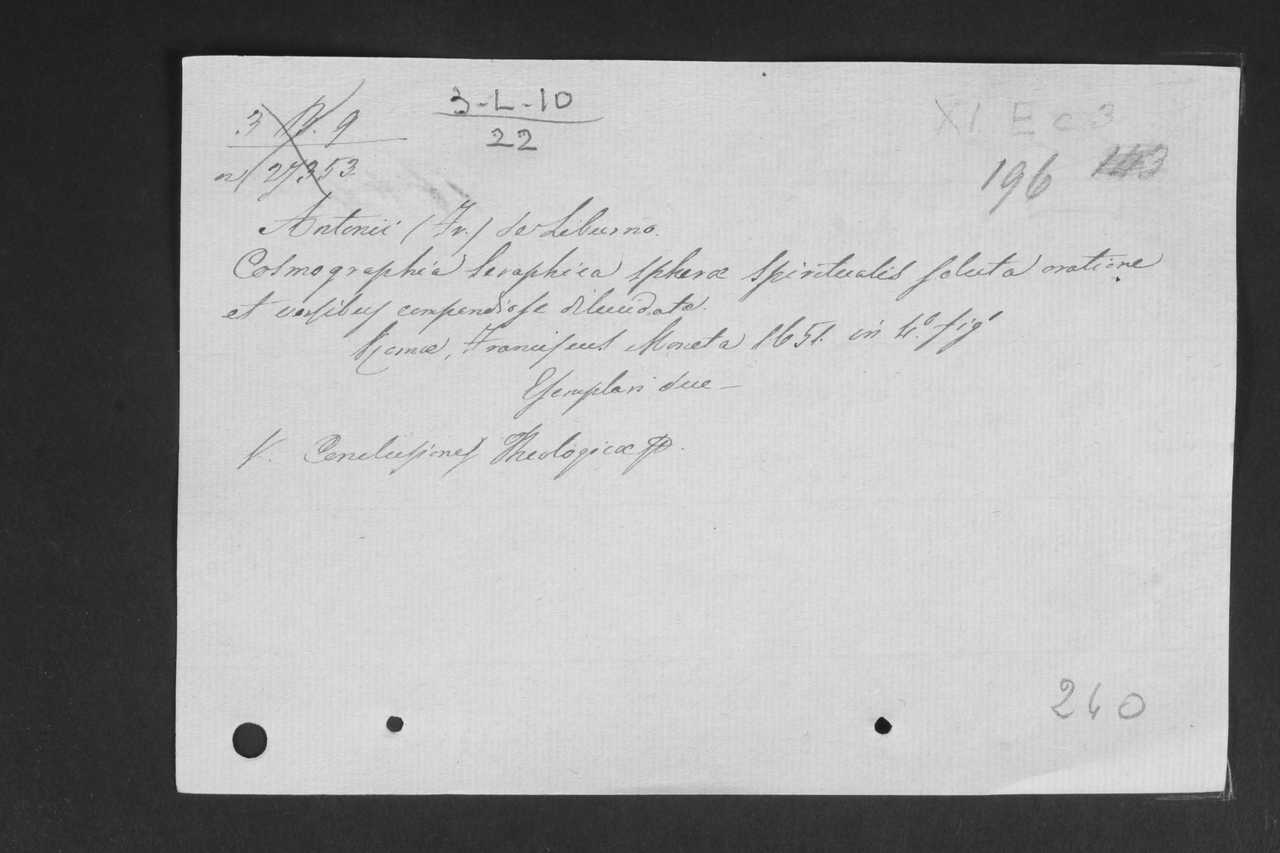 3 N. 9
n. 27353
3-L-10
22
XI E c 3
196
Antonii (Fr.) de Liburno.
Cosmographia Seraphica spheræ spiritualis soluta oratione
et versibus compendiose dilucidata.
Romæ, Franciscus Moneta 1651. in 4.º figº
Esemplari due —
V. Conclusiones Theologicæ
240